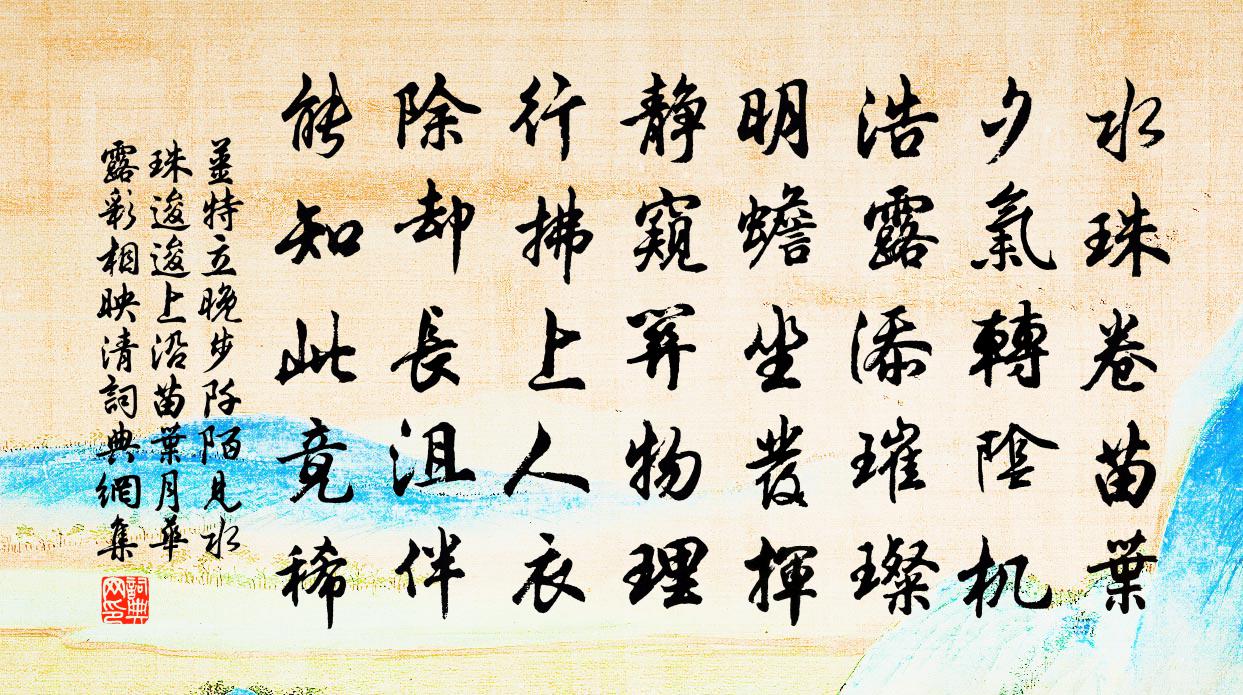 水珠卷苗葉
夕氣轉陰机
浩露添璀璨
明蟾坐發揮
靜窺開物理
行拂上人衣
除却長沮伴
能知此竟稀
薑特立晚步阡陌見水
珠逡逡上沿苗葉月華
露彩相映清詞典網集
詞典
网印